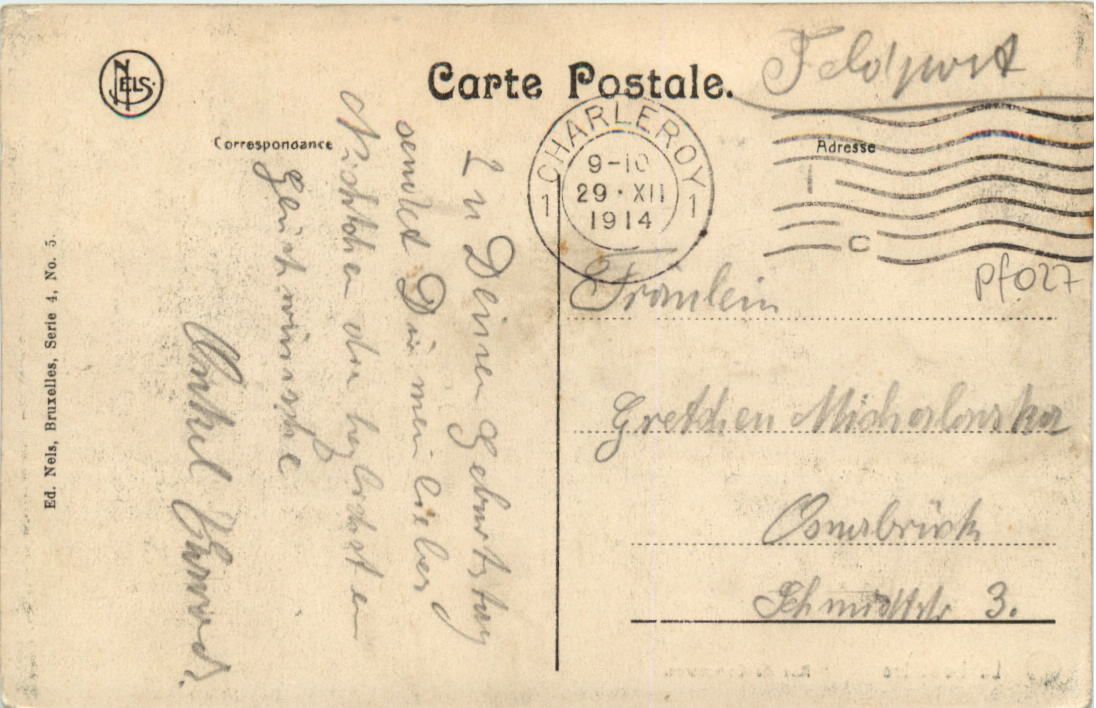 NELS.
Carte Postale.
Feldpost
Correspondance
Adresse
CHARLEROY
1 1
9-10
29·XII
1914
1
C
pf027
Zu Deinem Geburtstag
sendet Dir mein liebes
Nichtchen die herzlichsten
Glückwünsche
Onkel
Fräulein
Gretchen Michalowska
Osnabrück
Schmidtstr 3.
Ed. Nels, Bruxelles, Serie 4, No. 5.